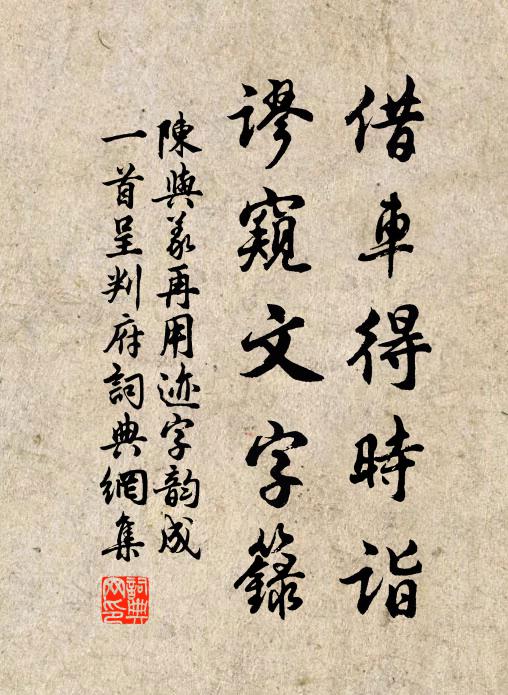 借車得時詣
謬窺文字籙
陳與義再用迹字韵成
一首呈判府詞典網集
詞典
網印